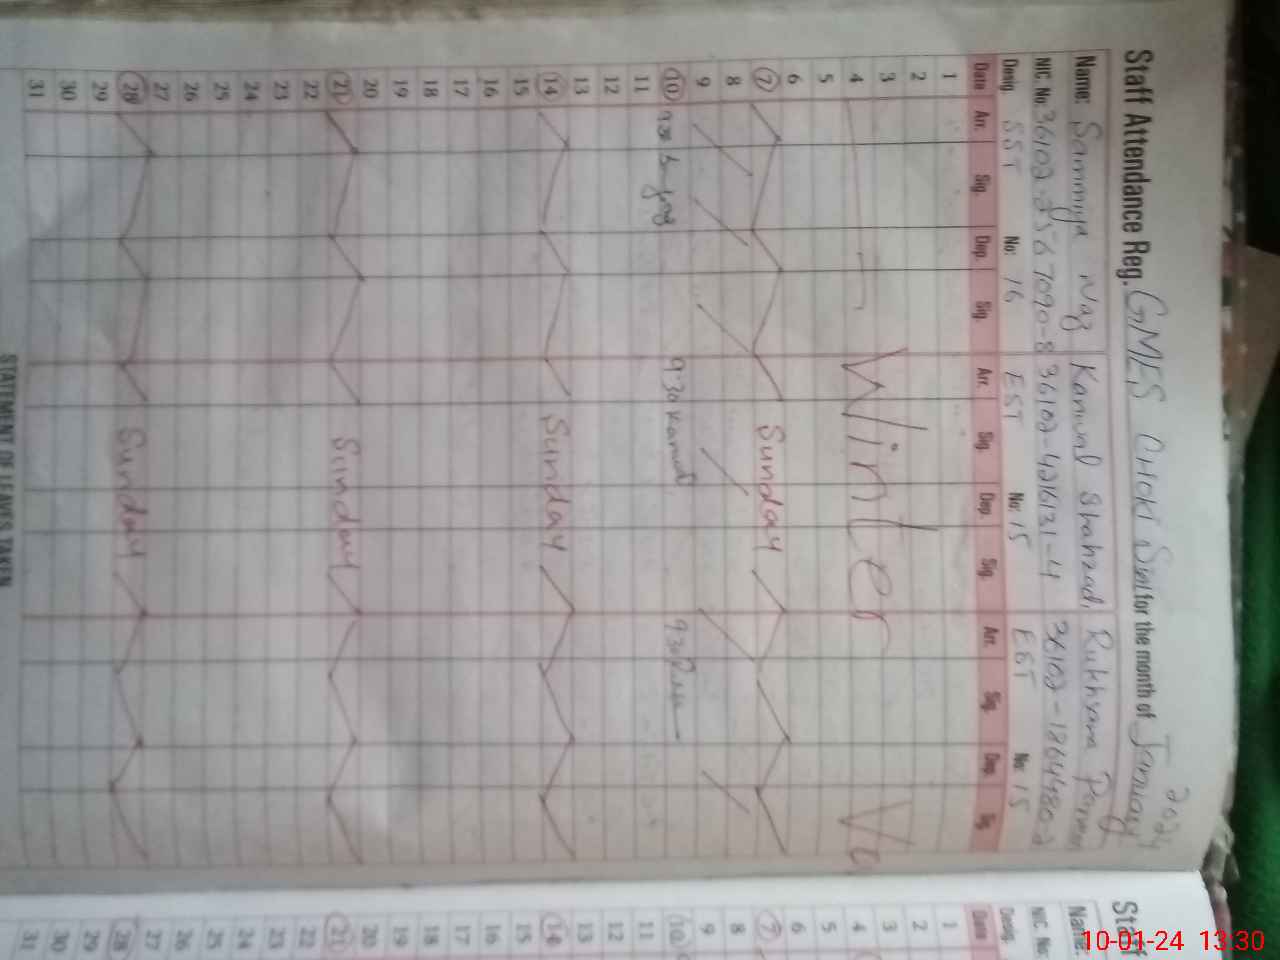 2024
Staff Attendance Reg. GMES CHOKI for the month of January
Name: Sammiya Naz Kanwal Shahzadi Rukhsana Parveen
NIC. No: 36102-2567090-8 36102-4216131-4 36102-1864480-2
Desig. SST No: 16 EST No: 15 EST No: 15
Date Arr. Sig. Dep. Sig. Arr. Sig. Dep. Sig. Arr. Sig. Dep. Sig.
1
2
3
4 Winter
5
6
7 Sunday
8
9
10 930 9:30 Kanwal 930
11
12
13
14 Sunday
15
16
17
18
19
20
21 Sunday
22
23
24
25
26
27
28 Sunday
29
30
31
STATEMENT OF LEAVES TAKEN
Staff
Name:
NIC. No:
Desig.
Date
1
2
3
4
5
6
7
8
9
10
11
12
13
14
15
16
17
18
19
20
21
22
23
24
25
26
27
28
29
30
31
10-01-24 13:30